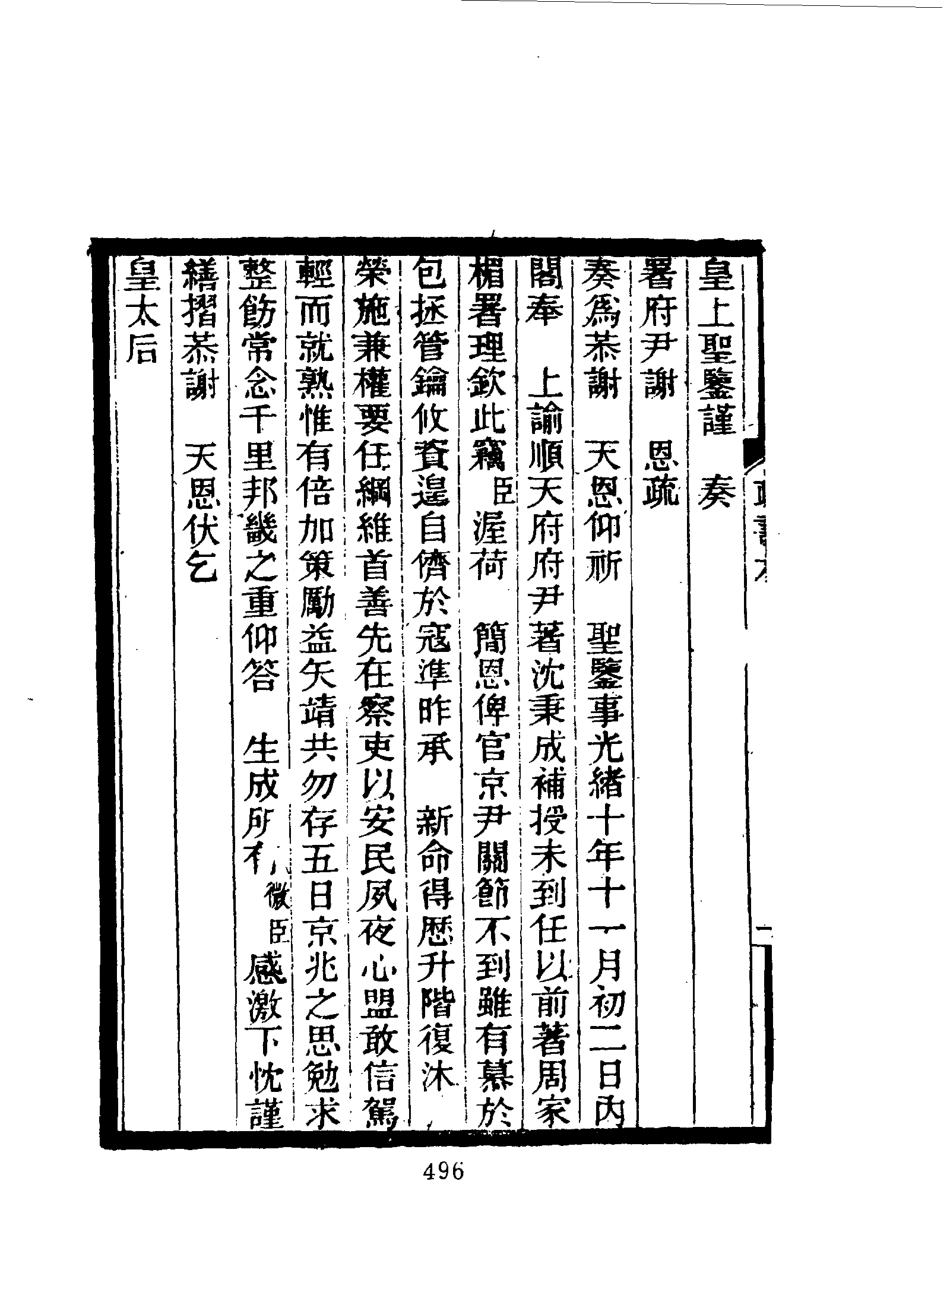 皇上聖鑒謹　奏
署府尹謝　恩疏
奏爲恭謝　天恩仰祈　聖鑒事光緒十年十一月初二日內
閣奉　上諭順天府府尹著沈秉成補授未到任以前著周家
楣署理欽此竊臣渥荷　簡恩俾官京尹關節不到雖有慕於
包拯管鑰攸資遑自儕於寇準昨承　新命得歷升階復沐
榮施兼權要任綱維首善先在察吏以安民夙夜心盟敢信駕
輕而就熟惟有倍加策勵益矢靖共勿存五日京兆之思勉求
整飭常念千里邦畿之重仰答　生成所有微臣感激下忱謹
繕摺恭謝　天恩伏乞
皇太后
496